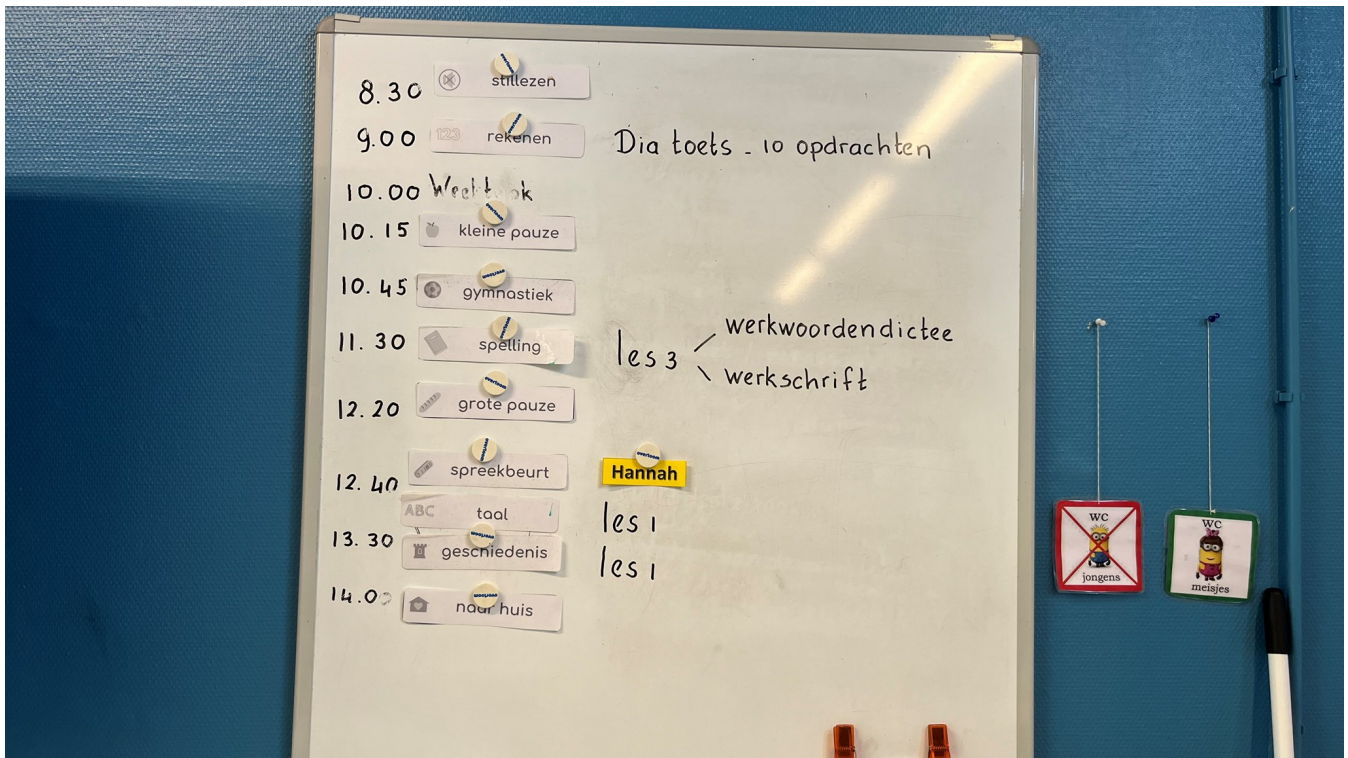 8.30 stillezen
9.00 rekenen Dia toets - 10 opdrachten
123
10.00
10.15 kleine pauze
10.45 gymnastiek
11.30 spelling les 3 werkwoordendictee
werkschrift
12.20 grote pauze
12.40 spreekbeurt Hannah
ABC taal les 1
13.30 geschiedenis les 1
14.00 naar huis
wc
jongens
wc
meisjes
overtoom